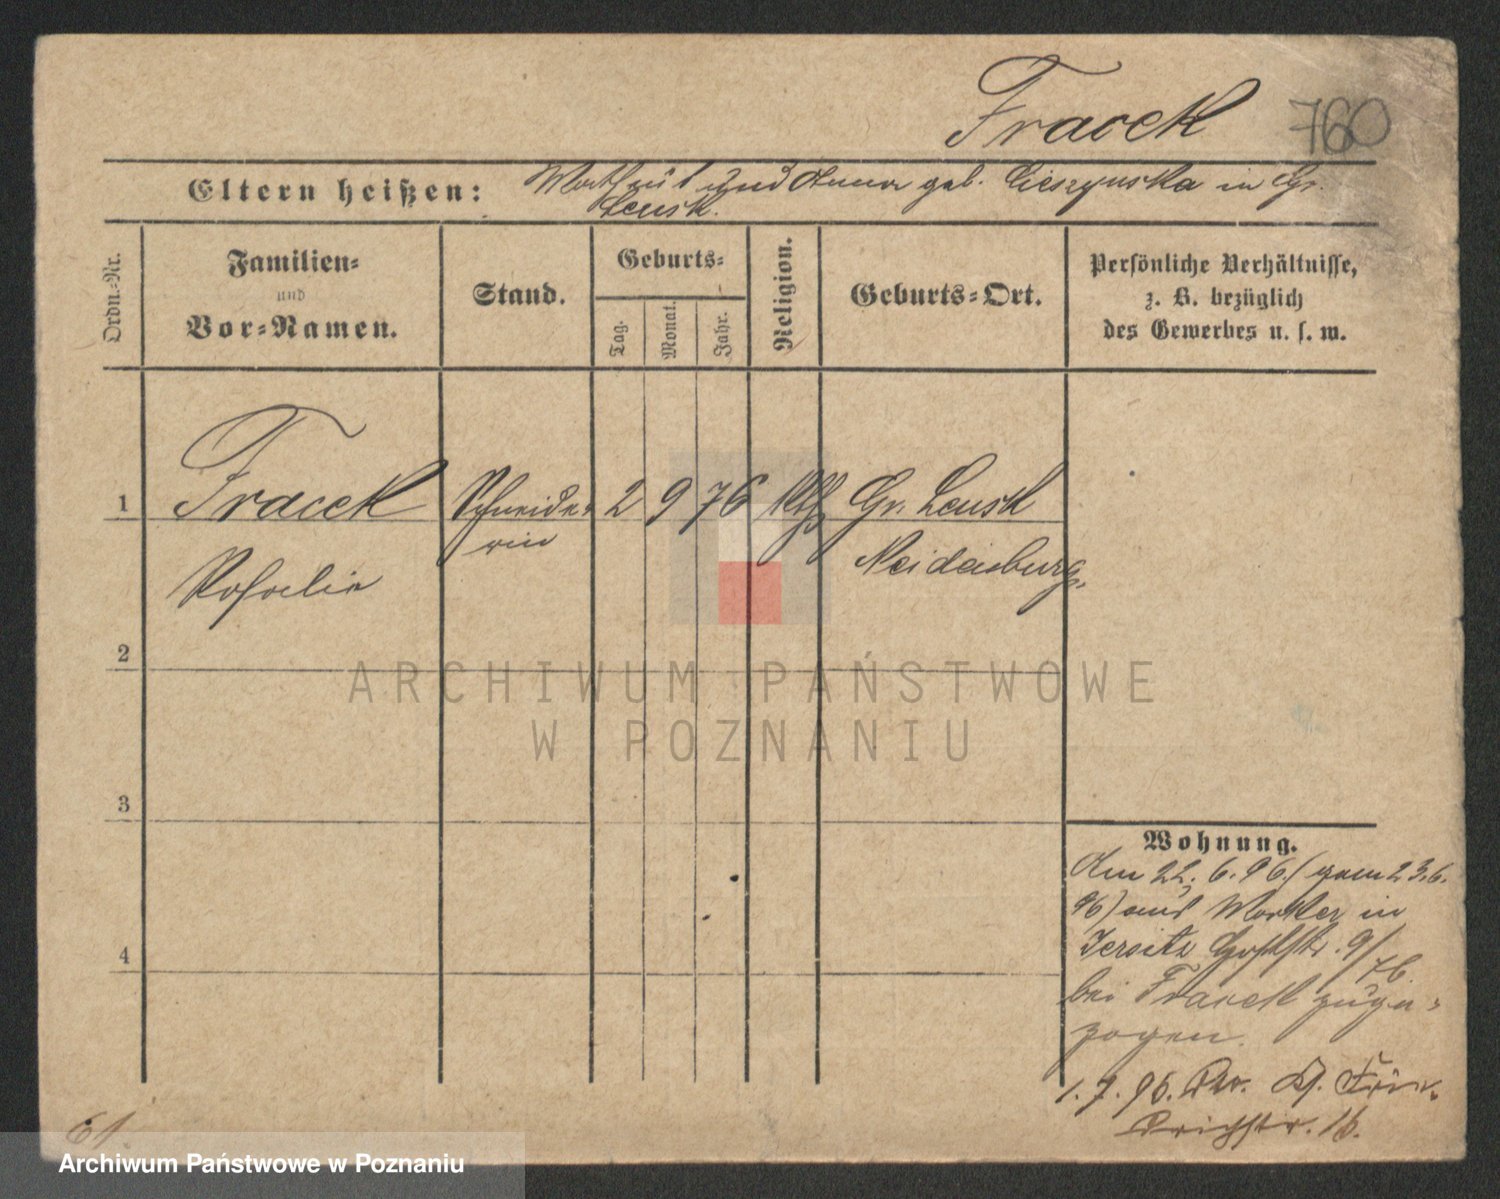 Fracek 760
Eltern heißen: und Anna geb. Cieszynska in Gr.
Lensk.
Ordn.-Nr.
Familien-
und
Vor-Namen.
Stand.
Geburts-
Tag.
Monat.
Jahr.
Religion.
Geburts-Ort.
Persönliche Verhältnisse,
z. B. bezüglich
des Gewerbes u. s. w.
1 Fracek Schneide- 2 9 76 Kth Gr. Lensk
rin Neidenburg.
Rosalie
2
3
4
Wohnung.
Am 22. 6. 96. (gem 23.6.
96) aus in
Jersitz 9/
76
bei Fracek zuge-
zogen.
1. 7. 96.
16.
61.
ARCHIWUM PAŃSTWOWE
W POZNANIU
Archiwum Państwowe w Poznaniu